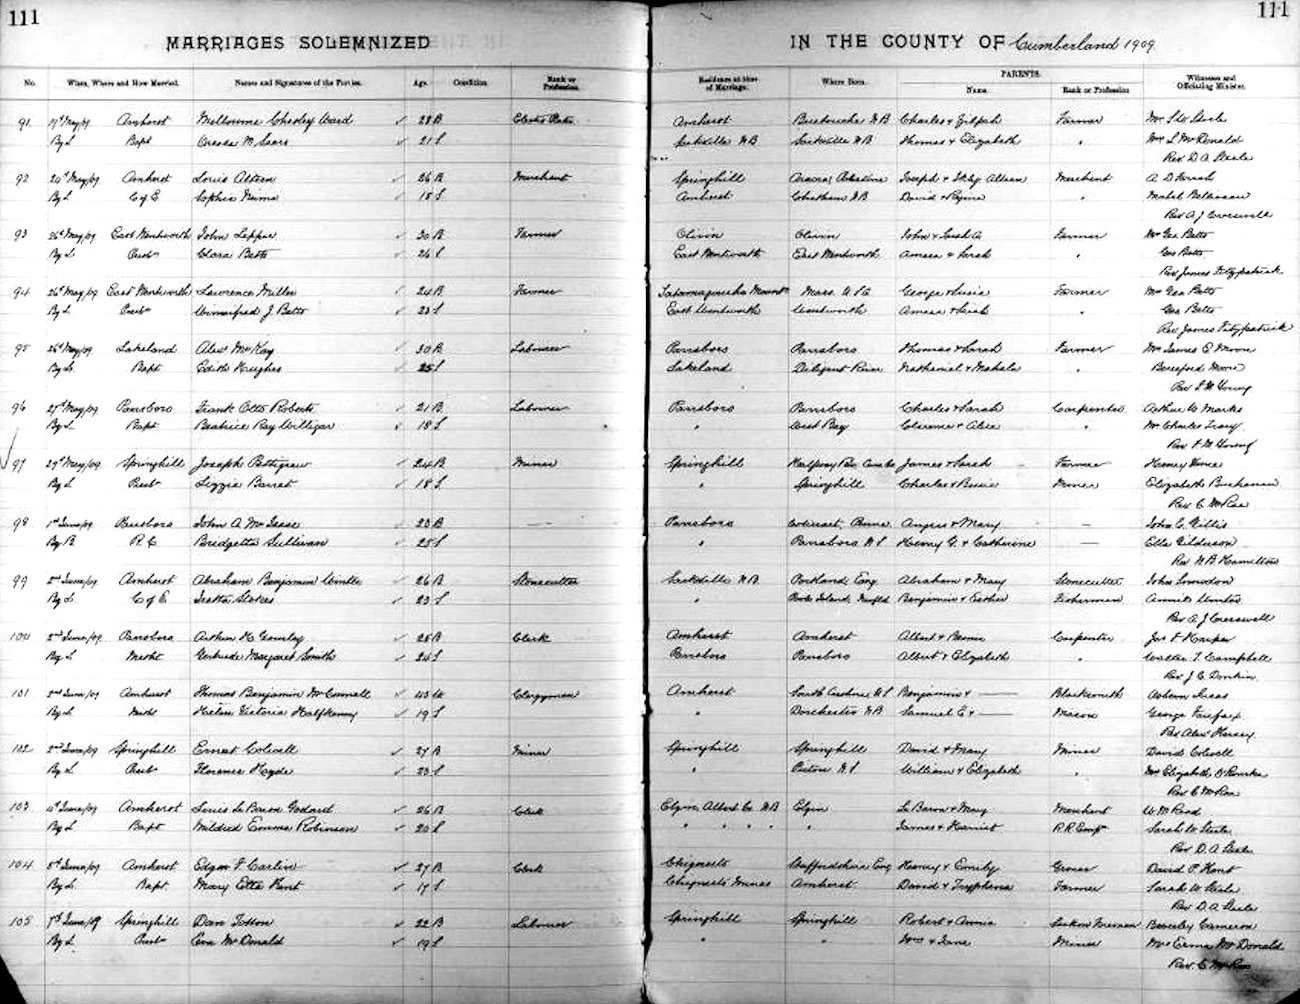 111
111
MARRIAGES SOLEMNIZED
IN THE COUNTY OF Cumberland 1909
PARENTS.
No. When, Where and How Married. Names and Signatures of the Parties. Age. Condition. Rank or Profession. Residence at time of Marriage. Where Born. Name. Rank or Profession Witnesses and Officiating Minister.
91 May/09 Amherst Melbourne Chesley Ward 28 B Amherst N B Charles & Zilpah Farmer
By L Bapt M Sears 21 S Sackville N B Sackville N B Thomas & Elizabeth " Mrs L McDonald
Rev D. A. Steele
92 May/09 Amherst Louis Atteen 26 B Merchant Springhill Joseph & Merchant
By L C of E Sophia Nema 18 S Amherst Chatham N B David & "
Rev A J Cresswell
93 26 May/09 East Wentworth John Lepper 30 B Farmer Olivin Olivin John & Sarah A Farmer Mrs Geo Betts
By L Presbn Clara Betts 26 S East Wentworth East Wentworth Amasa & Sarah " Geo Betts
Rev James Fitzpatrick
94 26 May/09 East Wentworth Lawrence Miller 24 B Farmer Tatamagouche Mountn Mass. U S A George & Susie Farmer Mrs Geo Betts
By L Presbn Winnifred J Betts 23 S East Wentworth Wentworth Amasa & Sarah " Geo Betts
Rev James Fitzpatrick
95 26 May/09 Lakeland Alex McKay 30 B Labourer Parrsboro Parrsboro Thomas & Sarah Farmer Mrs James E Moore
By L Bapt Edith Hughes 25 S Lakeland Diligent River Nathaniel & Mahala " Beresford Moore
Rev F M Young
96 27 May/09 Parrsboro Frank Otto Roberts 21 B Labourer Parrsboro Parrsboro Charles & Sarah Carpenter Arthur W Marks
By L Bapt Beatrice Ray Willigar 18 S " West Bay Clarence & Alice " Mrs Charles Tracy
Rev F M Young
97 29 May/09 Springhill Joseph Pettigrew 24 B Miner Springhill Halfway River James & Sarah Farmer Harvey
By L Presb Lizzie Barret 18 S " Springhill Charles & Miner Elizabeth Buchanan
Rev C McRae
98 1st June/09 Parrsboro John A McIsaac 23 B — Parrsboro Angus & Mary — John C Gillis
By B R. C Bridgetta Sullivan 25 S " Parrsboro N S Henry G. & Catherine — Ella Gilderson
Rev H B Hamilton
99 2nd June/09 Amherst Abraham Benjamin 26 B Stonecutter Sackville N B Portland Eng Abraham & Mary Stonecutter John Snowdon
By L C of E Stokes 23 S " Island, Newfld Benjamin & Esther Fisherman Annie
Rev A J Cresswell
100 2nd June/09 Parrsboro Arthur H Gourley 25 B Clerk Amherst Amherst Albert & Carpenter Jas F Harper
By L Metht Gertrude Margaret Smith 24 S Parrsboro Parrsboro Albert & Elizabeth " Walter T. Campbell
Rev J. C. Donkin
101 2nd June/09 Amherst Thomas Benjamin McConnell W Clergyman Amherst South Carolina U S Benjamin & — Blacksmith Isaac
By L Meth Helen Victoria Halfkenny 19 S " Dorchester N B Samuel E & — Mason George Fairfax
Rev Alex Hersey
102 2nd June/09 Springhill Ernest Colwell 27 B Miner Springhill Springhill David & Mary Miner David Colwell
By L Presb Florence Hyde 23 S " Pictou N S. William & Elizabeth " Mrs Elizabeth O'Rourke
Rev C McRae
103 4 June/09 Amherst Louis Le Baron Godard 26 B Clerk Elgin, Albert Co N B Elgin Le Baron & Mary Merchant W. M. Read
By L Bapt Mildred Emma Robinson 20 S " " " " " James & Harriet R. R. Empe Sarah W Steele
Rev D. A. Steele
104 5 June/09 Amherst Edgar F Carlin 27 B Clerk Chignecto Staffordshire Eng Henry & Emily Grocer David P Hunt
By L Bapt Mary Etta Hunt 17 S Chignecto Mines Amherst David & Tryphena Farmer Sarah W Steele
Rev. D. A. Steele
105 7th June/09 Springhill Dan Totton 22 B Labourer Springhill Springhill Robert & Annie Section Foreman Beverley Cameron
By L Presb Eva McDonald 19 S " " Wm & Jane Miner Mrs Erma McDonald
Rev. C McRae